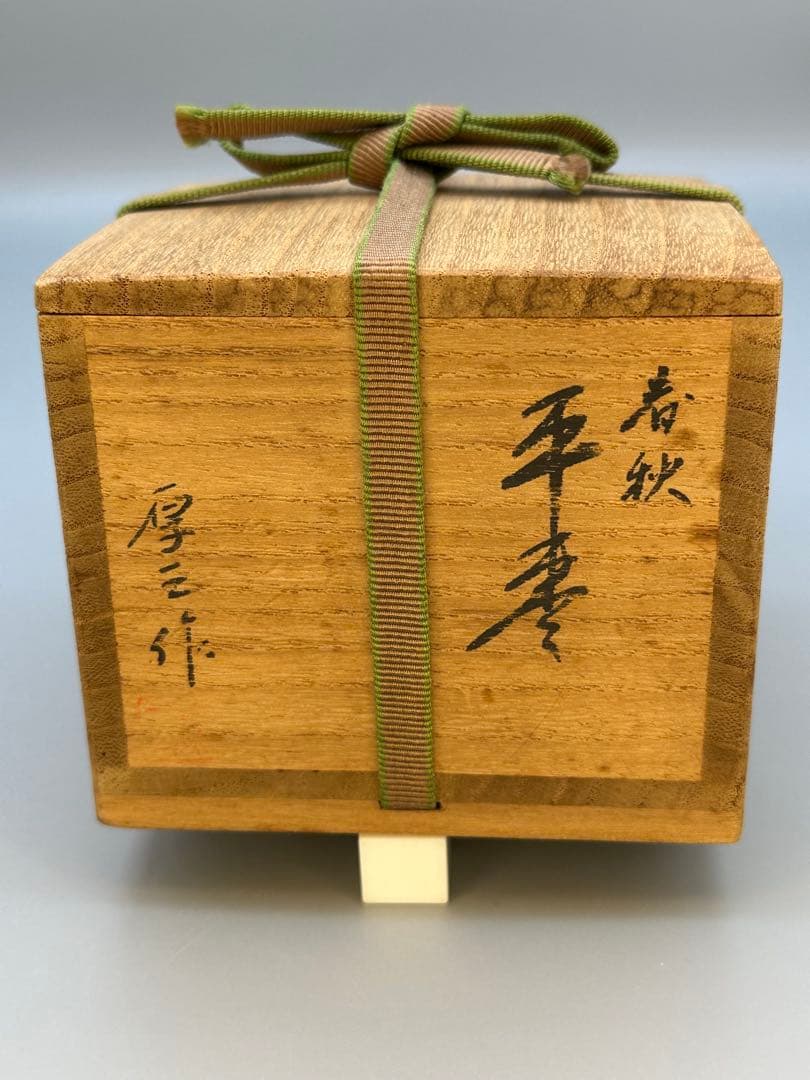 春秋
平棗
厚三作